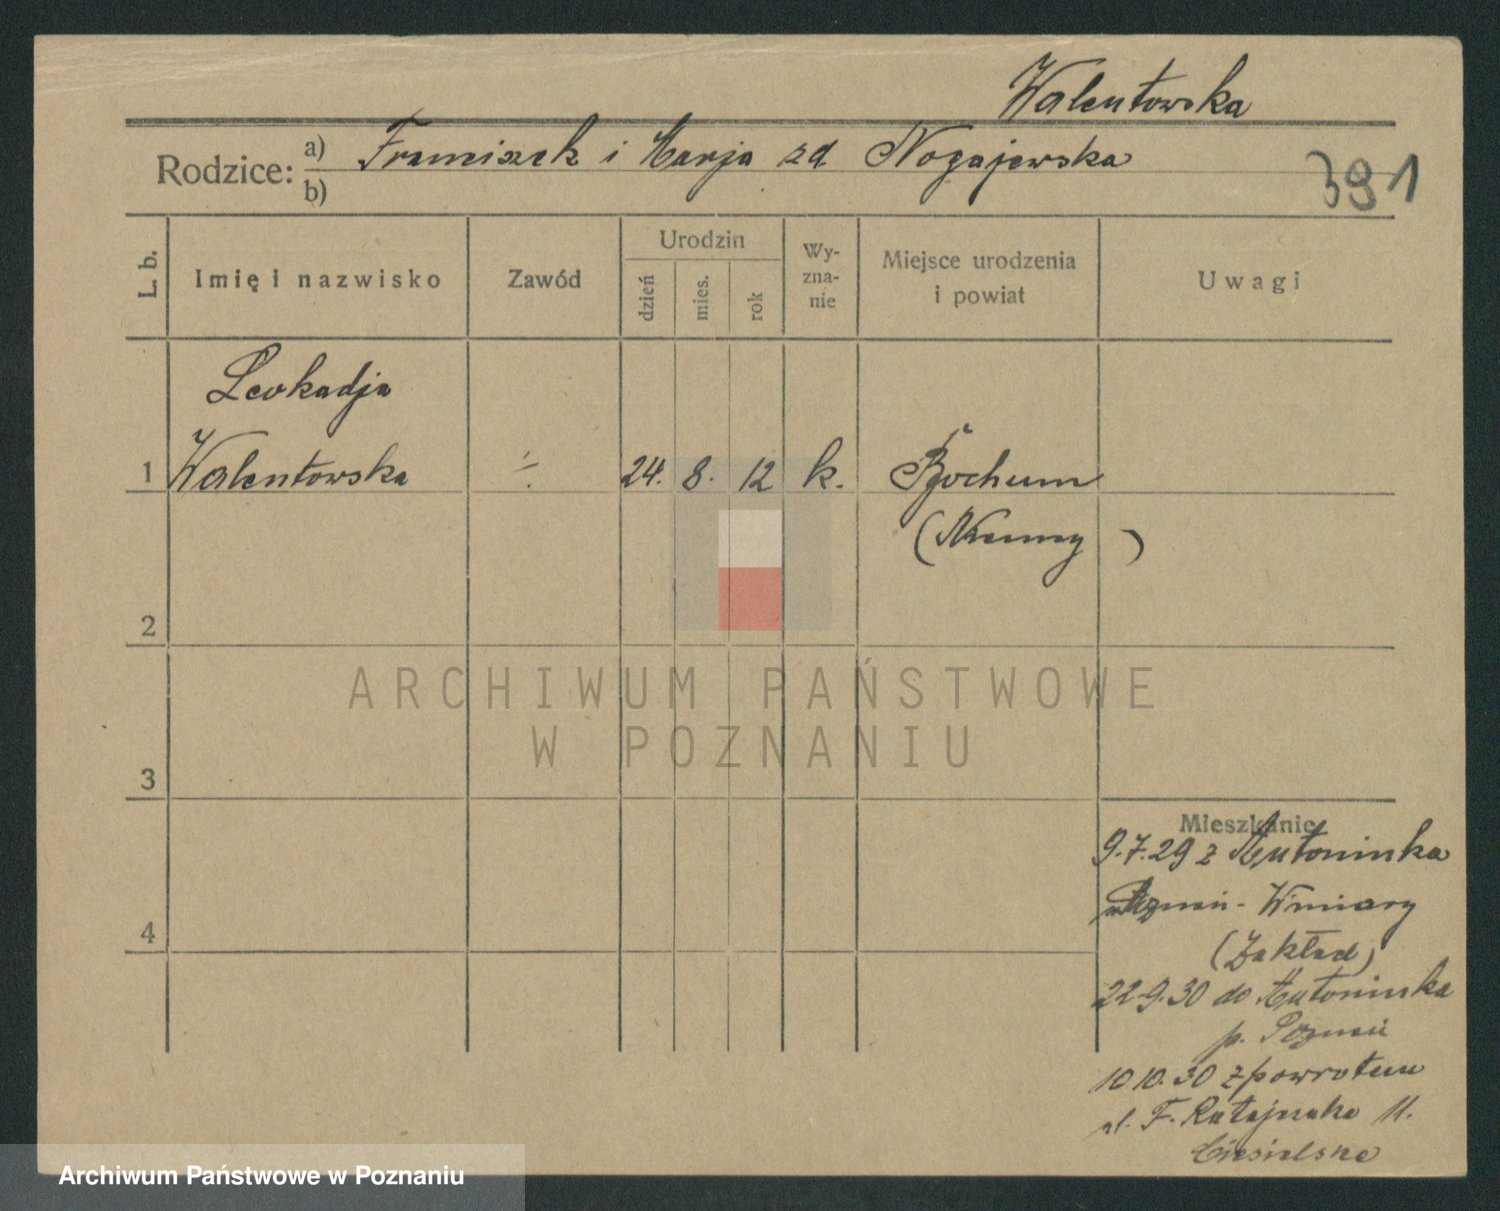 Walentowska
Rodzice: a) Franciszek i Marja zd. Nogajewska
b)
391
L. b. Imię i nazwisko Zawód Urodzin dzień mies. rok Wy-zna-nie Miejsce urodzenia i powiat Uwagi
Leokadja
1 Walentowska ÷ 24. 8. 12 k. Bochum
(Niemcy)
2
ARCHIWUM PAŃSTWOWE
W POZNANIU
3
Mieszkanie
9.7.29 z Antoninka
Poznań - Winiary
4
(Zakład)
22.9.30 do Antoninka
p. Poznań
10 10.30 z powrotem
ul. F. Ratajczaka 11.
Ciesielska
Archiwum Państwowe w Poznaniu